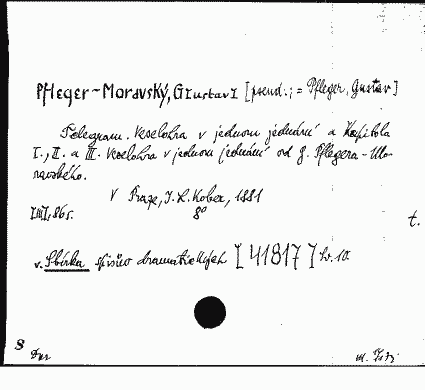 Pfleger-Moravský, Gustav [pseud.; = Pfleger, Gustav]
Telegram. Veselohra v jednom jednání a Kapitola
I., II. a III. Veselohra v jednom jednání od G. Pflegera-Mo-
ravského.
V Praze, I. L. Kober, 1881
8°
86 s.
t.
v. Sbírka spisův dramatických [41817] sv. 10
8